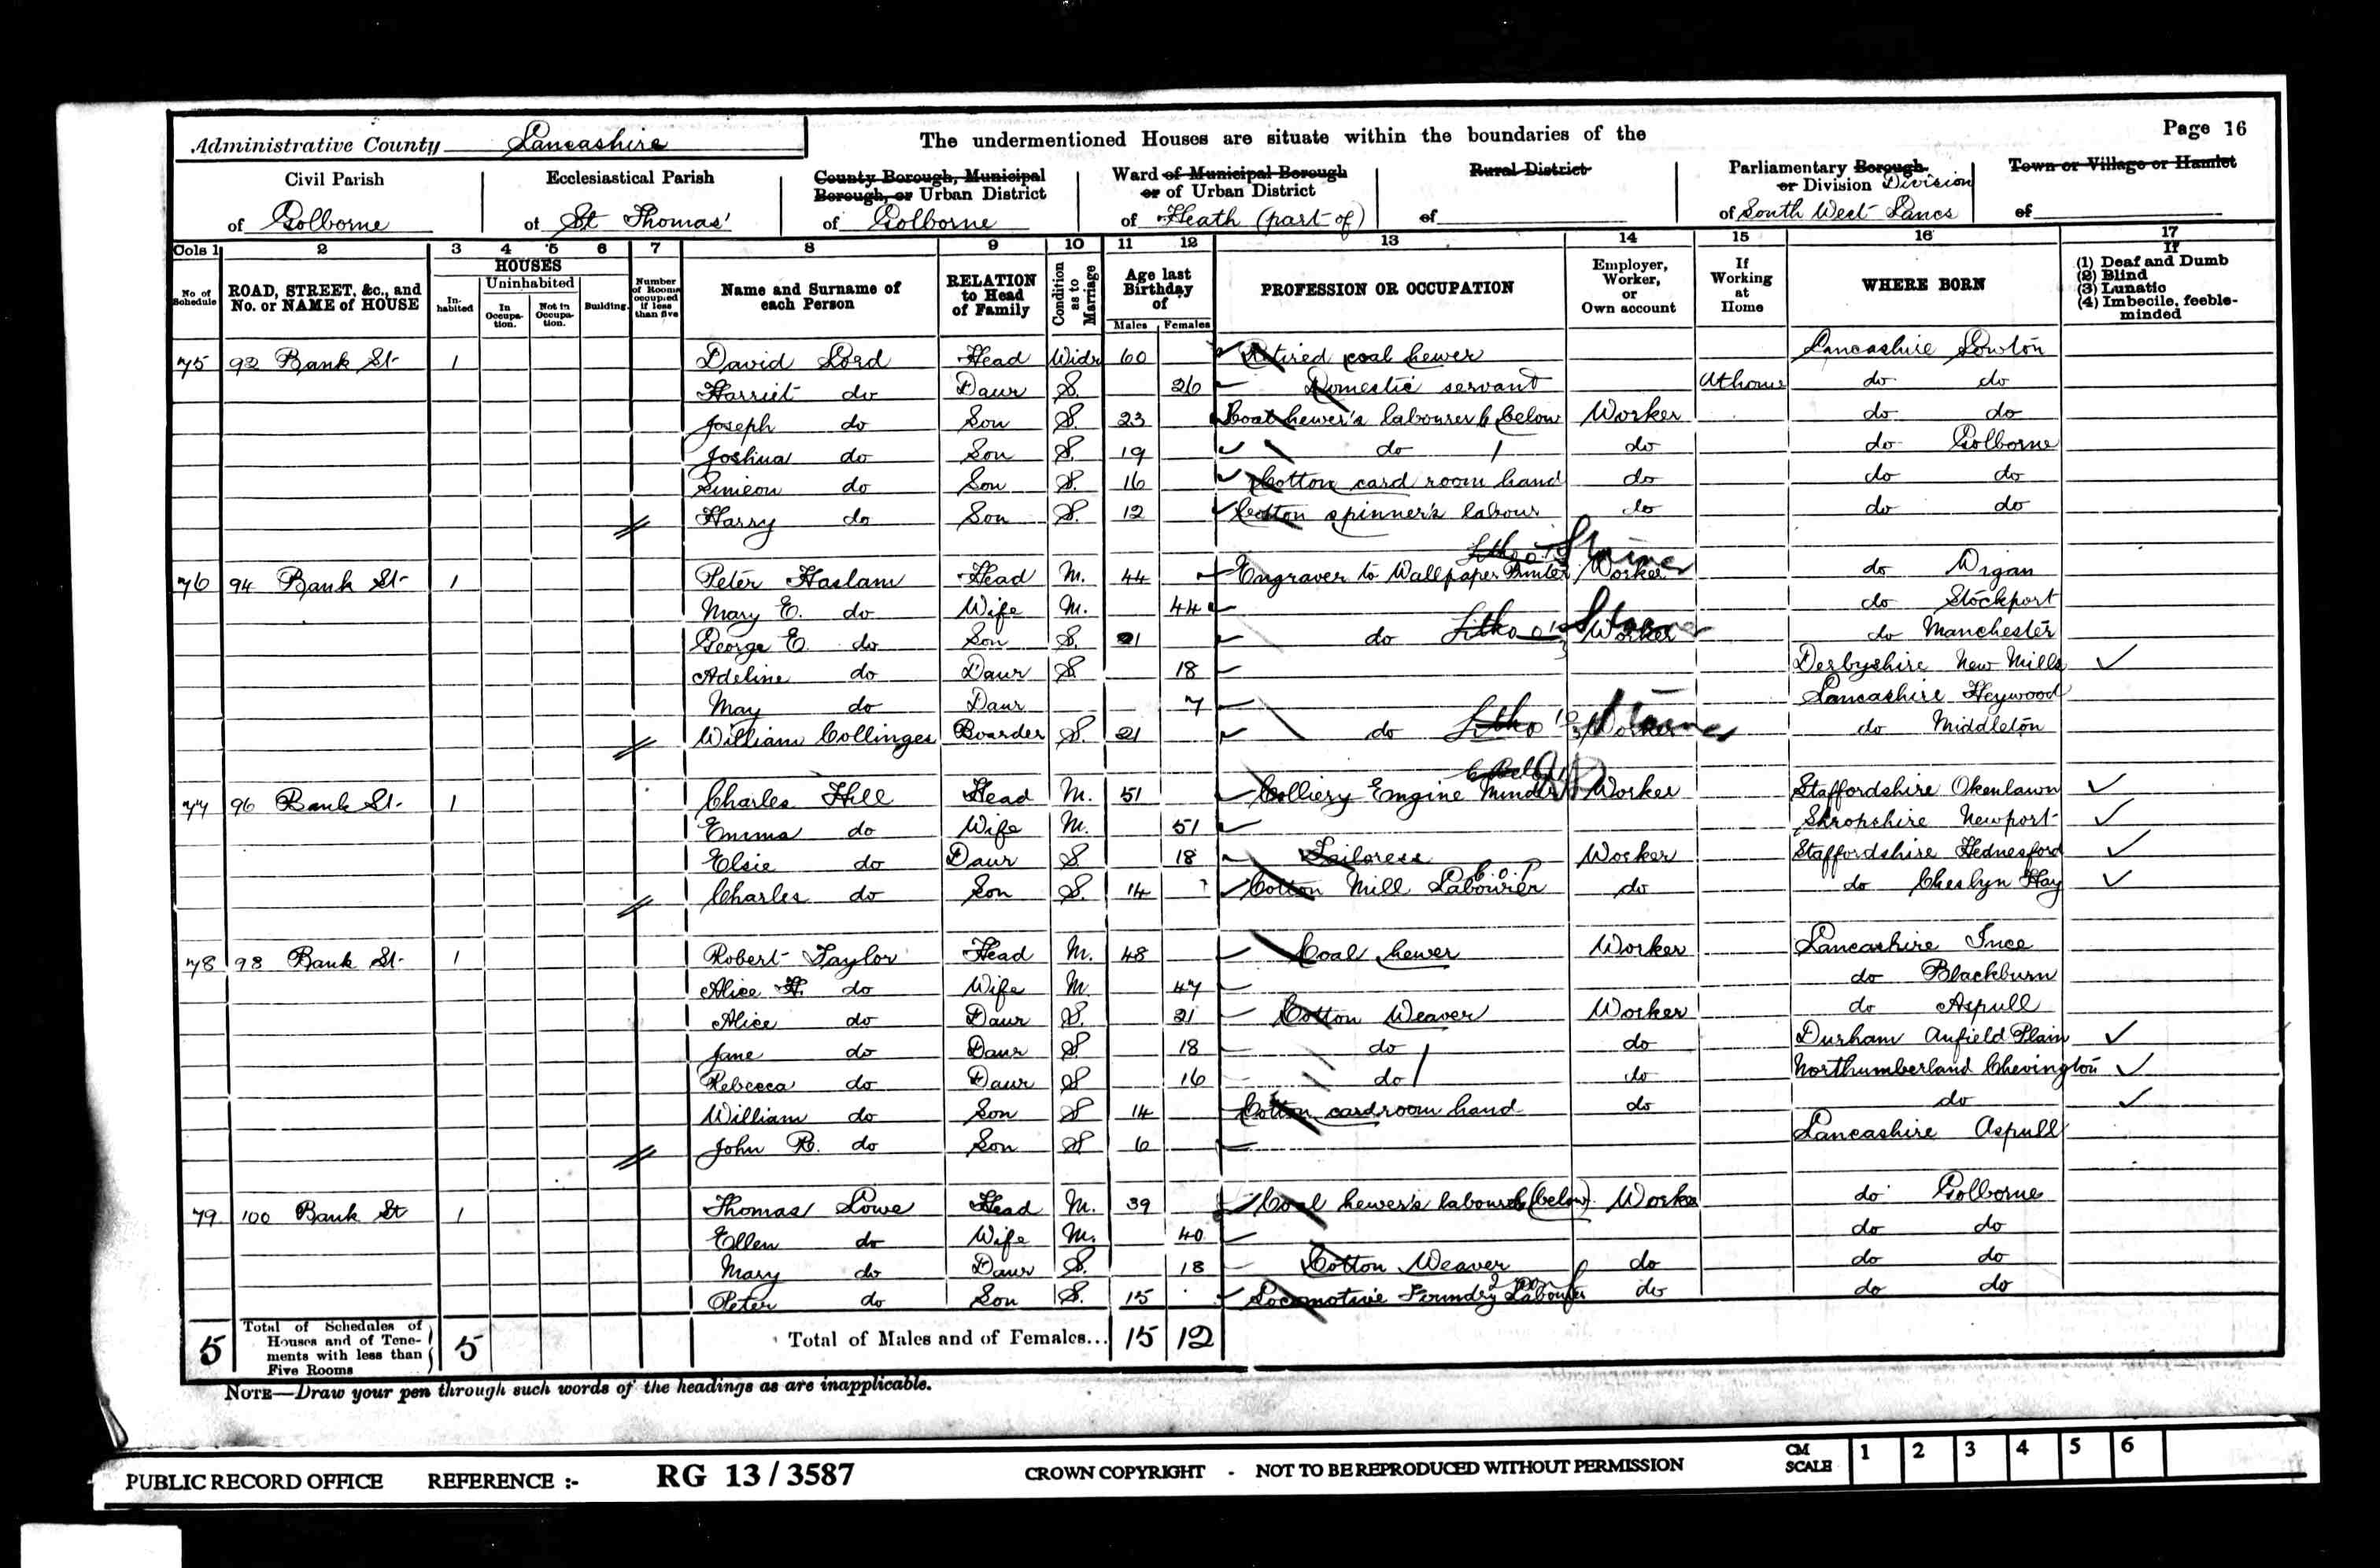 Administrative County Lancashire The undermentioned Houses are situate within the boundaries of the Page 16
Civil Parish Ecclesiastical Parish County Borough, Municipal Borough, or Urban District Ward of Municipal Borough or of Urban District Rural District Parliamentary Borough or Division Division Town or Village or Hamlet
of Golborne of St Thomas' of Golborne of Heath (part of) of of South West Lancs of
Cols 1 2 3 4 5 6 7 8 9 10 11 12 13 14 15 16 17
No. of Schedule ROAD, STREET, &c., and No. or NAME of HOUSE HOUSES Inhabited Uninhabited In Occupation. Not in Occupation. Building. Number of Rooms occupied if less than five Name and Surname of each Person RELATION to Head of Family Condition as to Marriage Age last Birthday of Males Females PROFESSION OR OCCUPATION Employer, Worker, or Own account If Working at Home WHERE BORN If (1) Deaf and Dumb (2) Blind (3) Lunatic (4) Imbecile, feeble-minded
75 92 Bank St 1 David Lord Head Widr 60 Retired coal hewer Lancashire Lowton
Harriet do Daur S. 26 Domestic servant At home do do
Joseph do Son S. 23 Coal hewer's labourer below Worker do do
Joshua do Son S. 19 do do do Golborne
Simeon do Son S. 16 Cotton card room hand do do do
Harry do Son S. 12 Cotton spinner's labour do do do
76 94 Bank St 1 Peter Haslam Head M. 44 Engraver to Wallpaper Printer Worker do Wigan
Mary E. do Wife M. 44 do Stockport
George E. do Son S. 21 do Litho Worker do Manchester
Adeline do Daur S 18 Derbyshire New Mills
May do Daur 7 Lancashire Heywood
William Collinges Boarder S. 21 do Litho Worker do Middleton
77 96 Bank St. 1 Charles Hill Head M. 51 Colliery Engine Minder Worker Staffordshire Okenlawn
Emma do Wife M. 51 Shropshire Newport
Elsie do Daur S 18 Tailoress Worker Staffordshire Hednesford
Charles do Son S. 14 Cotton Mill Labourer do do Cheslyn Hay
78 98 Bank St. 1 Robert Taylor Head M. 48 Coal hewer Worker Lancashire Ince
Alice H. do Wife M. 47 do Blackburn
Alice do Daur S. 21 Cotton Weaver Worker do Aspull
Jane do Daur S. 18 do do Durham Anfield Plain
Rebecca do Daur S 16 do do Northumberland Chevington
William do Son S 14 Cotton cardroom hand do do
John R. do Son S 6 Lancashire Aspull
79 100 Bank St 1 Thomas Lowe Head M. 39 Coal hewer's labourer (below) Worker do Golborne
Ellen do Wife M. 40 do do
Mary do Daur S. 18 Cotton Weaver do do do
Peter do Son S. 15 Locomotive Foundry Labourer do do do
5 Total of Schedules of Houses and of Tenements with less than Five Rooms 5 Total of Males and of Females... 15 12
NOTE—Draw your pen through such words of the headings as are inapplicable.
PUBLIC RECORD OFFICE REFERENCE :- RG 13 / 3587 CROWN COPYRIGHT - NOT TO BE REPRODUCED WITHOUT PERMISSION CM SCALE 1 2 3 4 5 6